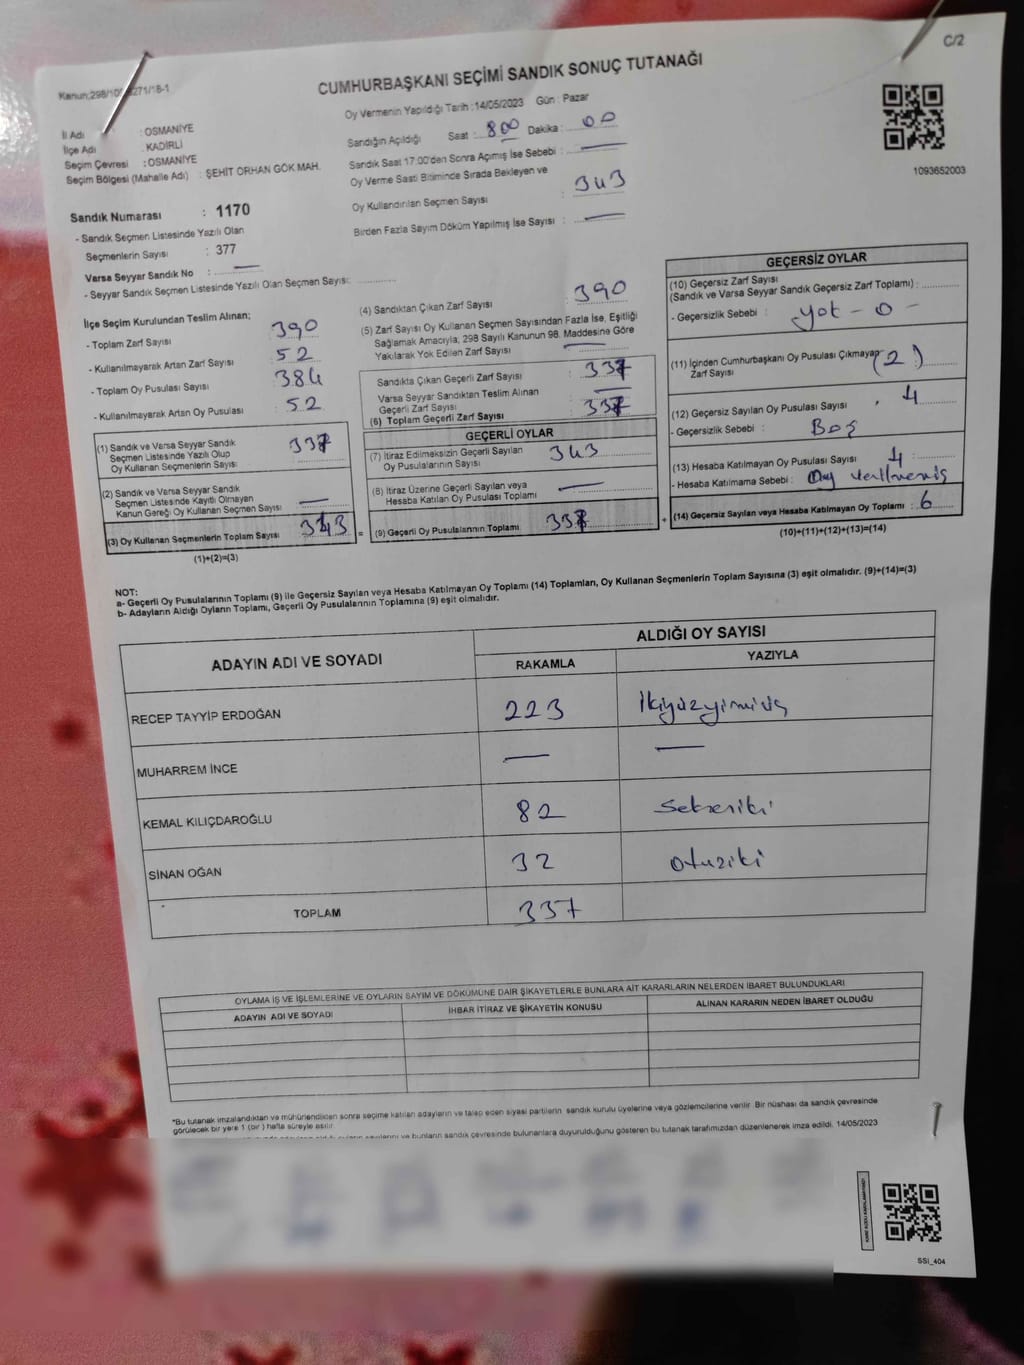 C/2
CUMHURBAŞKANI SEÇİMİ SANDIK SONUÇ TUTANAĞI
Oy Vermenin Yapıldığı Tarih :14/05/2023 Gün : Pazar
İl Adı : OSMANİYE
İlçe Adı : KADİRLİ
Seçim Çevresi : OSMANİYE
Seçim Bölgesi (Mahalle Adı) : ŞEHİT ORHAN GÖK MAH.
Sandık Numarası : 1170
- Sandık Seçmen Listesinde Yazılı Olan
Seçmenlerin Sayısı : 377
Varsa Seyyar Sandık No : —
- Seyyar Sandık Seçmen Listesinde Yazılı Olan Seçmen Sayısı:
Sandığın Açıldığı Saat : 800 Dakika : 00
Sandık Saat 17:00'den Sonra Açımış İse Sebebi : —
Oy Verme Saati Bitiminde Sırada Bekleyen ve
Oy Kullandırılan Seçmen Sayısı : 343
Birden Fazla Sayım Döküm Yapılmış İse Sayısı : —
1093652003
İlçe Seçim Kurulundan Teslim Alınan;
- Toplam Zarf Sayısı : 390
- Kullanılmayarak Artan Zarf Sayısı : 52
- Toplam Oy Pusulası Sayısı : 384
- Kullanılmayarak Artan Oy Pusulası : 52
(1) Sandık ve Varsa Seyyar Sandık
Seçmen Listesinde Yazılı Olup
Oy Kullanan Seçmenlerin Sayısı : 337
(2) Sandık ve Varsa Seyyar Sandık
Seçmen Listesinde Kayıtlı Olmayan
Kanun Gereği Oy Kullanan Seçmen Sayısı : —
(3) Oy Kullanan Seçmenlerin Toplam Sayısı : 343
(1)+(2)=(3)
(4) Sandıktan Çıkan Zarf Sayısı : 390
(5) Zarf Sayısı Oy Kullanan Seçmen Sayısından Fazla İse, Eşitliği
Sağlamak Amacıyla, 298 Sayılı Kanunun 98. Maddesine Göre
Yakılarak Yok Edilen Zarf Sayısı : —
Sandıkta Çıkan Geçerli Zarf Sayısı : 337
Varsa Seyyar Sandıktan Teslim Alınan
Geçerli Zarf Sayısı : —
(6) Toplam Geçerli Zarf Sayısı : 337
GEÇERLİ OYLAR
(7) İtiraz Edilmeksizin Geçerli Sayılan
Oy Pusulalarının Sayısı : 343
(8) İtiraz Üzerine Geçerli Sayılan veya
Hesaba Katılan Oy Pusulası Toplamı : —
(9) Geçerli Oy Pusulalarının Toplamı : 337
GEÇERSİZ OYLAR
(10) Geçersiz Zarf Sayısı
(Sandık ve Varsa Seyyar Sandık Geçersiz Zarf Toplamı) :
- Geçersizlik Sebebi : yok - 0 -
(11) İçinden Cumhurbaşkanı Oy Pusulası Çıkmayan
Zarf Sayısı : (2)
(12) Geçersiz Sayılan Oy Pusulası Sayısı : 4
- Geçersizlik Sebebi : Boş
(13) Hesaba Katılmayan Oy Pusulası Sayısı : 4
- Hesaba Katılmama Sebebi : Oy verilmemiş
(14) Geçersiz Sayılan veya Hesaba Katılmayan Oy Toplamı : 6
(10)+(11)+(12)+(13)=(14)
NOT:
a- Geçerli Oy Pusulalarının Toplamı (9) ile Geçersiz Sayılan veya Hesaba Katılmayan Oy Toplamı (14) Toplamları, Oy Kullanan Seçmenlerin Toplam Sayısına (3) eşit olmalıdır. (9)+(14)=(3)
b- Adayların Aldığı Oyların Toplamı, Geçerli Oy Pusulalarının Toplamına (9) eşit olmalıdır.
ADAYIN ADI VE SOYADI
ALDIĞI OY SAYISI
RAKAMLA YAZIYLA
RECEP TAYYİP ERDOĞAN 223 ikiyüzyirmiüç
MUHARREM İNCE — —
KEMAL KILIÇDAROĞLU 82 Sekseniki
SİNAN OĞAN 32 otuziki
TOPLAM 337
OYLAMA İŞ VE İŞLEMLERİNE VE OYLARIN SAYIM VE DÖKÜMÜNE DAİR ŞİKAYETLERLE BUNLARA AİT KARARLARIN NELERDEN İBARET BULUNDUKLARI
ADAYIN ADI VE SOYADI İHBAR İTİRAZ VE ŞİKAYETİN KONUSU ALINAN KARARIN NEDEN İBARET OLDUĞU
*Bu tutanak imzalandıktan ve mühürlendikten sonra seçime katılan adayların ve talep eden siyasi partilerin sandık kurulu üyelerine veya gözlemcilerine verilir. Bir nüshası da sandık çevresinde
görülecek bir yere 1 (bir) hafta süreyle asılır.
bunların sandık çevresinde bulunanlara duyurulduğunu gösteren bu tutanak tarafımızdan düzenlenerek imza edildi. 14/05/2023
SSI_404